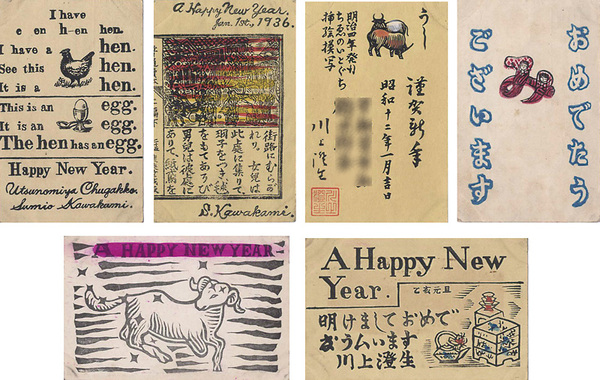 I have
c on h-en hen.
I have a hen.
See this hen.
It is a hen.
This is an egg.
It is an egg.
The hen has an egg.
Happy New Year.
Utsunomiya Chugakko.
Sumio Kawakami.
A Happy New Year.
Jan. 1st, 1936.
街路にむらが
れり、女児は
此處に集りて、
羽子をつき、毬
をもてあそび
男児は彼處に
ありて、紙鳶を
S. Kawakami.
うし
明治四年発行
ちゑのいとぐち
挿絵模写
謹賀新年
昭和十二年一月吉日
川上澄生
おめでたう
み
ございます
A HAPPY NEW YEAR
A Happy New
Year.
乙亥元旦
明けましておめで
うムいます
川上澄生